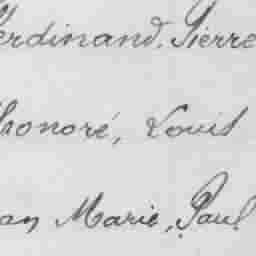 Ferdinand, Pierre
Honoré, Louis
an Marie, Paul